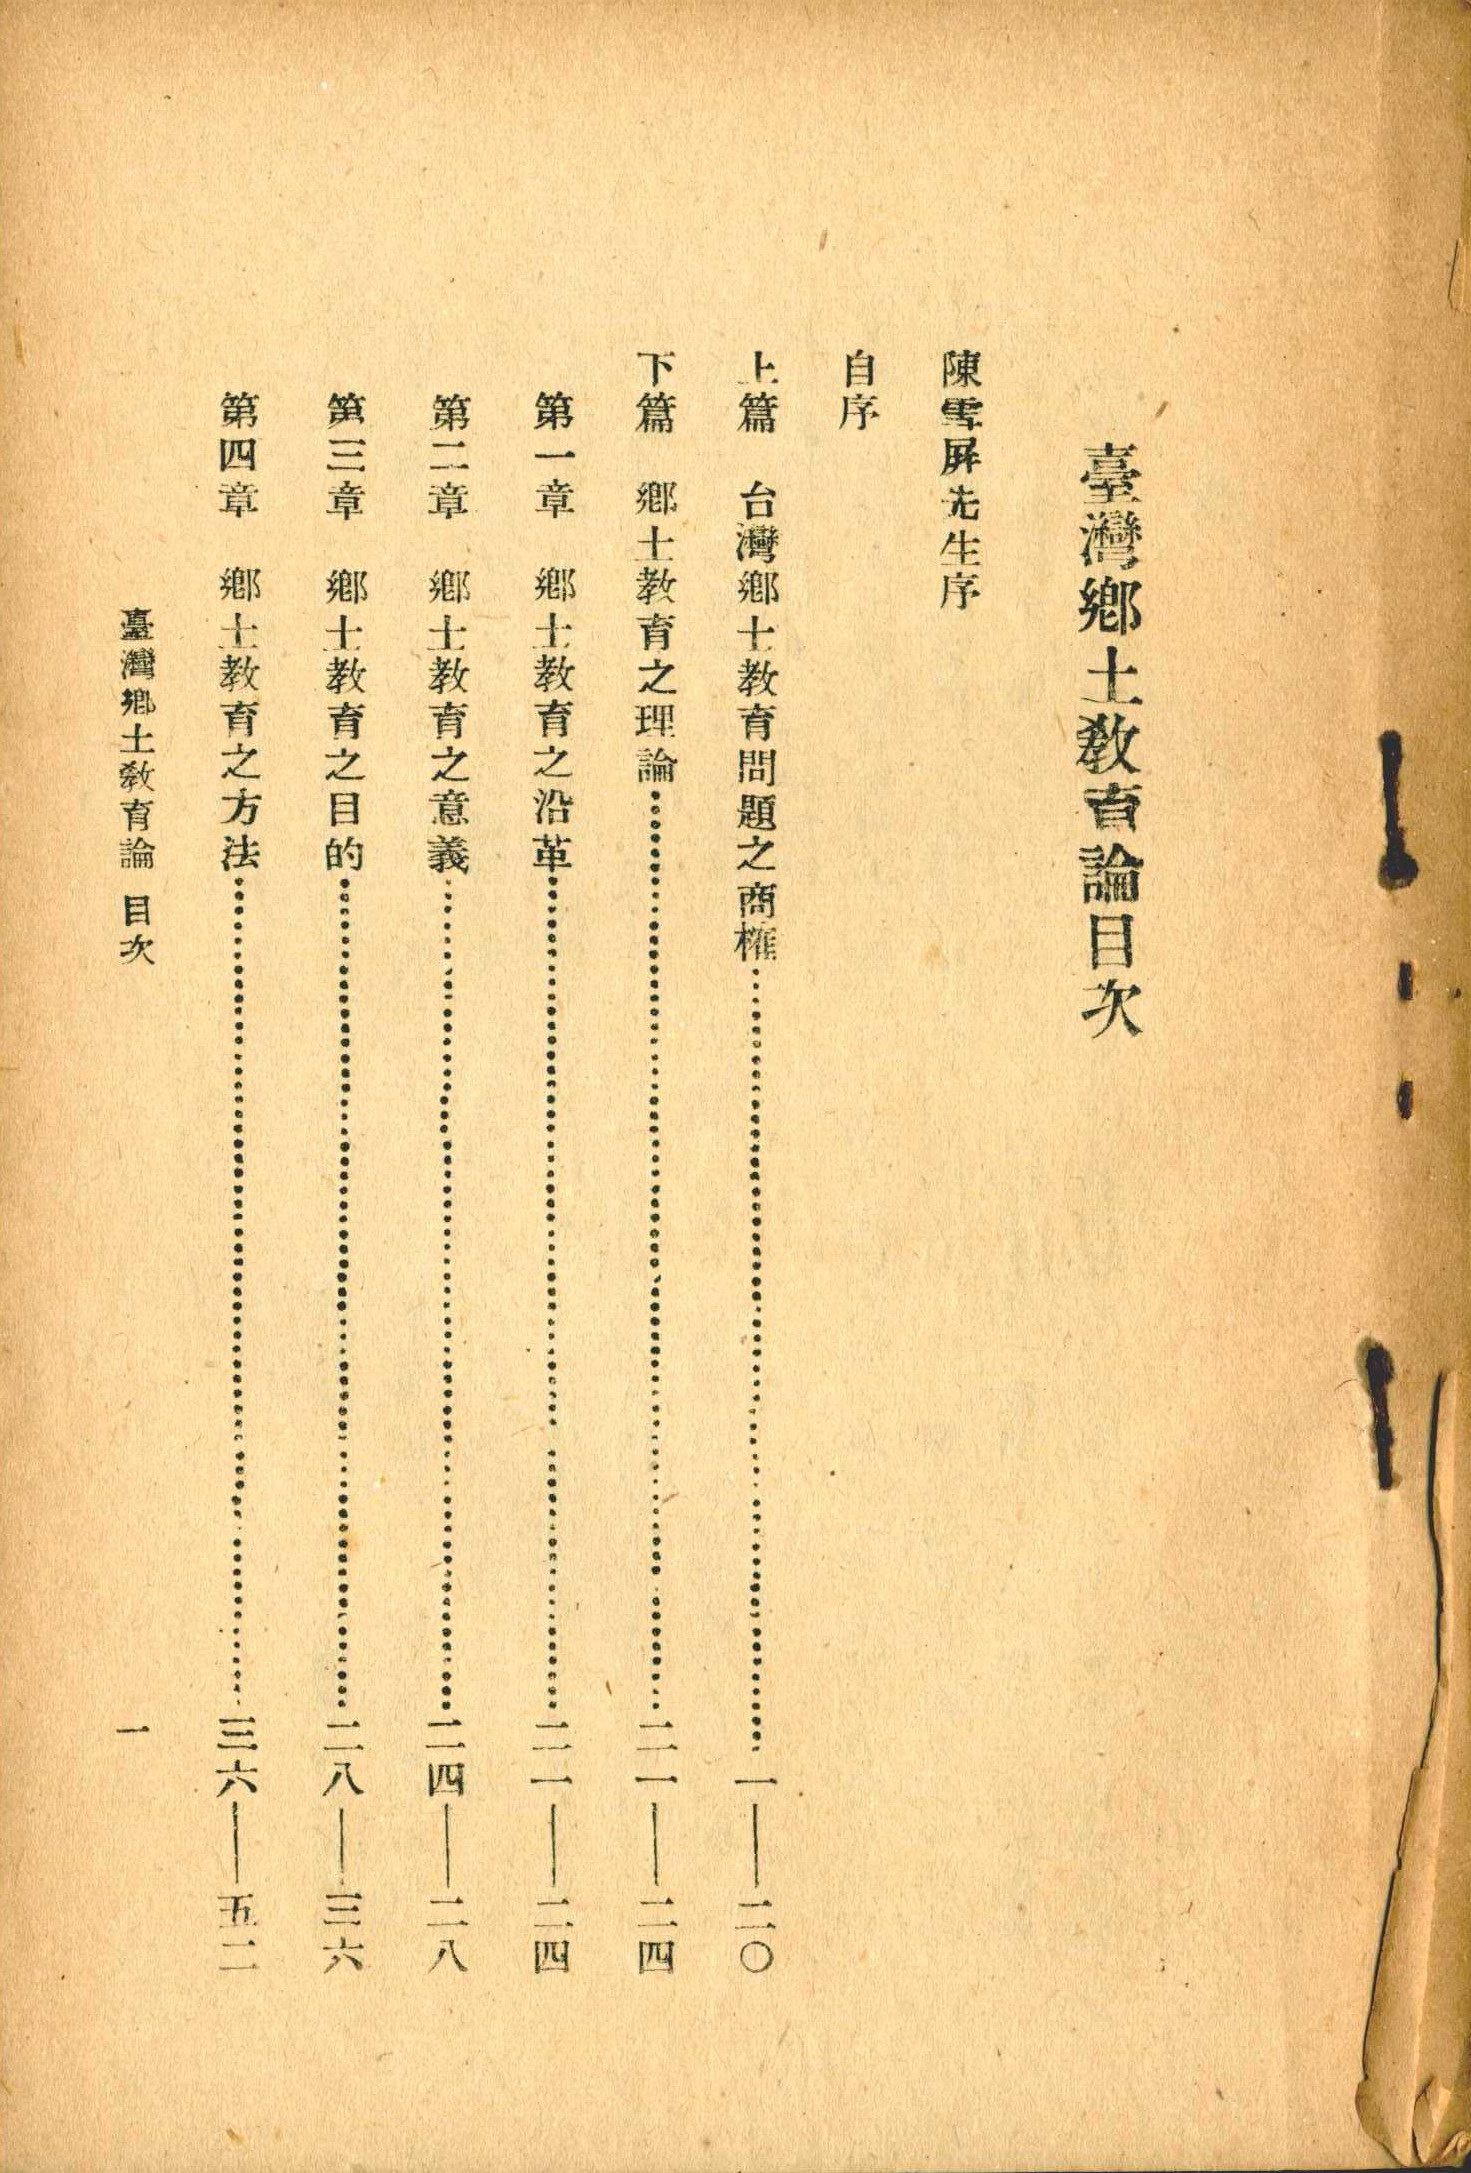 臺灣鄉土教育論目次
陳雪屏先生序
自序
上篇　台灣鄉土教育問題之商榷……一——二〇
下篇　鄉土教育之理論……二一——二四
第一章　鄉土教育之沿革……二一——二四
第二章　鄉土教育之意義……二四——二八
第三章　鄉土教育之目的……二八——三六
第四章　鄉土教育之方法……三六——五二
臺灣鄉土教育論　目次
一